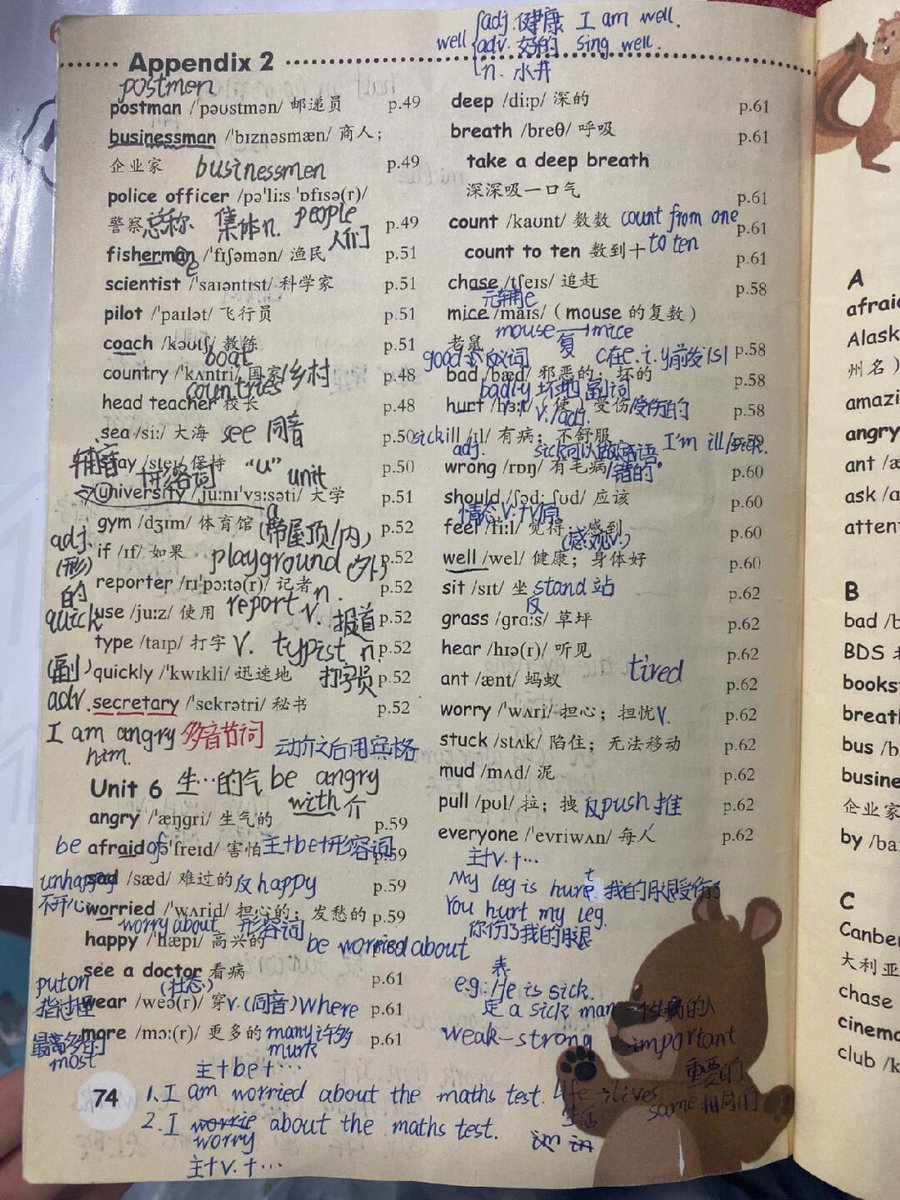 Appendix 2
well
adj. 健康 I am well.
adv. 好的 sing well.
n. 水井
postmen
postman /ˈpəʊstmən/ 邮递员 p.49
businessman /ˈbɪznəsmæn/ 商人；
企业家 businessmen p.49
police officer /pəˈliːs ˈɒfɪsə(r)/
警察 总称 集体n. people 人们 p.49
fisherman /ˈfɪʃəmən/ 渔民 p.51
e
scientist /ˈsaɪəntɪst/ 科学家 p.51
pilot /ˈpaɪlət/ 飞行员 p.51
coach /kəʊtʃ/ 教练 p.51
boat
country /ˈkʌntri/ 国家/乡村 p.48
countries
head teacher 校长 p.48
sea /siː/ 大海 see 同音 p.50
stay /steɪ/ 保持 p.50
辅音 "u" unit
university /ˌjuːnɪˈvɜːsəti/ 大学 p.51
a
gym /dʒɪm/ 体育馆 (带屋顶/内) p.52
if /ɪf/ 如果 playground 户外 p.52
adj.
(形)
的
quick
reporter /rɪˈpɔːtə(r)/ 记者 n. p.52
use /juːz/ 使用 report v. 报道 p.52
type /taɪp/ 打字 v. typist n. p.52
打字员
(副)
adv.
quickly /ˈkwɪkli/ 迅速地 p.52
secretary /ˈsekrətri/ 秘书 p.52
I am angry 多音节词
him.
动介之后用宾格
Unit 6 生…的气 be angry
with 介
angry /ˈæŋɡri/ 生气的 p.59
be afraid of /əˈfreɪd/ 害怕 主+be+形容词 p.59
unhappy
不开心
sad /sæd/ 难过的 反 happy p.59
worried /ˈwʌrid/ 担心的；发愁的 p.59
worry about 形容词
happy /ˈhæpi/ 高兴的 be worried about
see a doctor 看病 p.61
put on
指过程
(状态)
wear /weə(r)/ 穿 v. (同音) where p.61
more /mɔː(r)/ 更多的 many 许多 p.61
much
最高多的
most
主+be+…
1. I am worried about the maths test.
2. I worrie about the maths test.
worry
主+v.+…
74
deep /diːp/ 深的 p.61
breath /breθ/ 呼吸 p.61
take a deep breath
深深吸一口气 p.61
count /kaʊnt/ 数数 count from one p.61
to ten
count to ten 数到十 p.61
chase /tʃeɪs/ 追赶 p.58
元辅e
mice /maɪs/（mouse 的复数）
mouse 复 mice
老鼠 p.58
good 反义词 c在e.i.y前发/s/
bad /bæd/ 邪恶的；坏的 p.58
badly 坏地 副词
hurt /hɜːt/（使）受伤 受伤的 p.58
v./adj.
sick
ill /ɪl/ 有病；不舒服 I'm ill/sick. p.59
adj. sick可以做定语
wrong /rɒŋ/ 有毛病/错的 p.60
should /ʃəd; ʃʊd/ 应该 p.60
情态v.+v原
feel /fiːl/ 觉得；感到 p.60
(感观v.)
well /wel/ 健康；身体好 p.60
sit /sɪt/ 坐 stand 站 p.62
反
grass /ɡrɑːs/ 草坪 p.62
hear /hɪə(r)/ 听见 p.62
ant /ænt/ 蚂蚁 tired p.62
worry /ˈwʌri/ 担心；担忧 v. p.62
stuck /stʌk/ 陷住；无法移动 p.62
mud /mʌd/ 泥 p.62
pull /pʊl/ 拉；拽 反 push 推 p.62
everyone /ˈevriwʌn/ 每人 p.62
主+v.+…
My leg is hurt 我的腿受伤了
You hurt my leg.
你伤了我的腿
表
e.g. He is sick.
定 a sick man 一个生病的人
weak-strong important
重要的
life→lives same 相同的
生活
A
afraid
Alask
州名）
amazi
angry
ant /æ
ask /ɑ
attent
B
bad /b
BDS
booksh
breath
bus /b
busine
企业家
by /ba
C
Canber
大利亚
chase
cinema
club /k